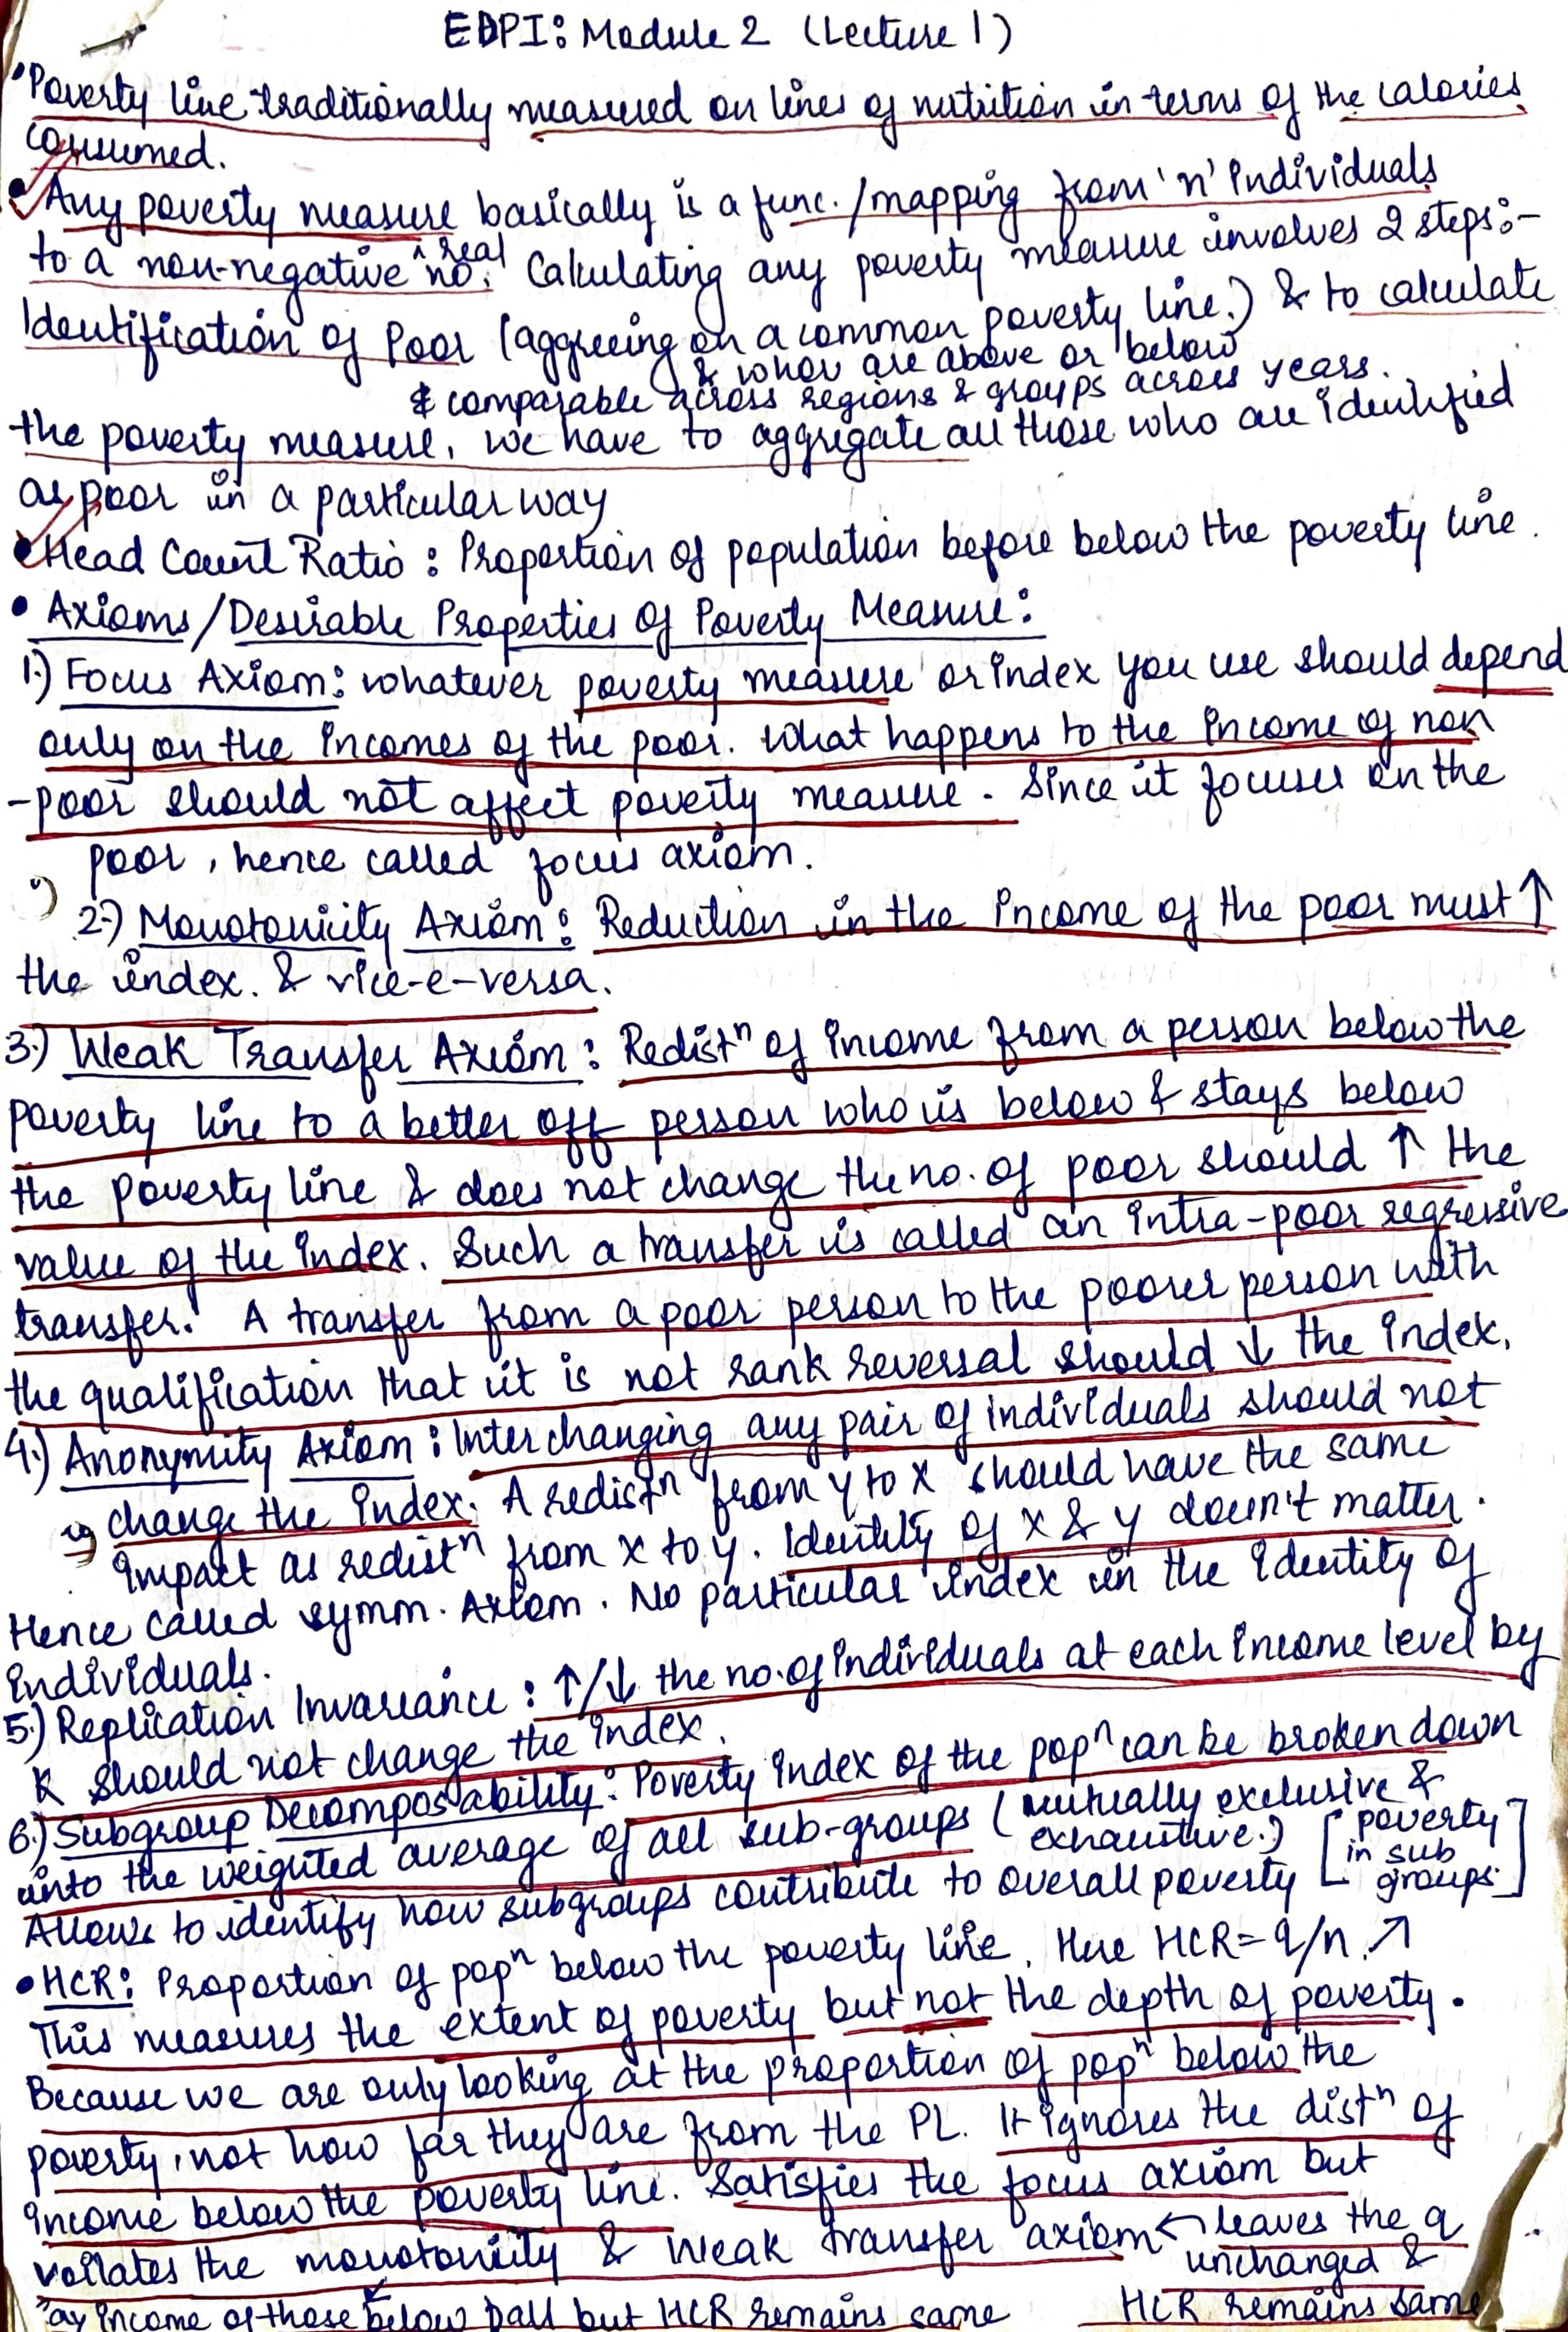 EDPI: Module 2 (Lecture 1)
• Poverty line traditionally measured on lines of nutrition in terms of the calories
consumed.
• Any poverty measure basically is a func. /mapping from 'n' individuals
to a non-negative real no. Calculating any poverty measure involves 2 steps:-
Identification of Poor (aggreeing on a common poverty line.) & to calculate
& who are above or below
& comparable across regions & groups across years.
the poverty measure, we have to aggregate all those who are identified
as poor in a particular way
• Head Count Ratio : Proportion of population before below the poverty line.
• Axioms/Desirable Properties of Poverty Measure:
1.) Focus Axiom: whatever poverty measure or index you use should depend
only on the incomes of the poor. What happens to the income of non
-poor should not affect poverty measure. Since it focuses on the
poor, hence called focus axiom.
2.) Monotonicity Axiom: Reduction in the income of the poor must ↑
the index. & vice-e-versa.
3.) Weak Transfer Axiom: Redistⁿ of income from a person below the
poverty line to a better off person who is below & stays below
the poverty line & does not change the no. of poor should ↑ the
value of the index. Such a transfer is called an intra-poor regressive
transfer. A transfer from a poor person to the poorer person with
the qualification that it is not rank reversal should ↓ the index.
4.) Anonymity Axiom: Interchanging any pair of individuals should not
change the index. A redistⁿ from y to x should have the same
impact as redistⁿ from x to y. Identity of x & y doesn't matter.
Hence called symm. Axiom. No particular index in the identity of
individuals.
5.) Replication Invariance: ↑/↓ the no. of individuals at each income level by
K should not change the index.
6.) Subgroup Decomposability: Poverty index of the popⁿ can be broken down
into the weighted average of all sub-groups (mutually exclusive &
exhaustive.) [poverty in sub groups]
Allows to identify how subgroups contribute to overall poverty
• HCR: Proportion of popⁿ below the poverty line. Here HCR = q/n. ↗
This measures the extent of poverty but not the depth of poverty.
Because we are only looking at the proportion of popⁿ below the
poverty, not how far they are from the PL. It ignores the distⁿ of
income below the poverty line. Satisfies the focus axiom but
voilates the monotonicity & Weak transfer axiom ← leaves the q
unchanged &
HCR remains same
income of those below PL but HCR remains same